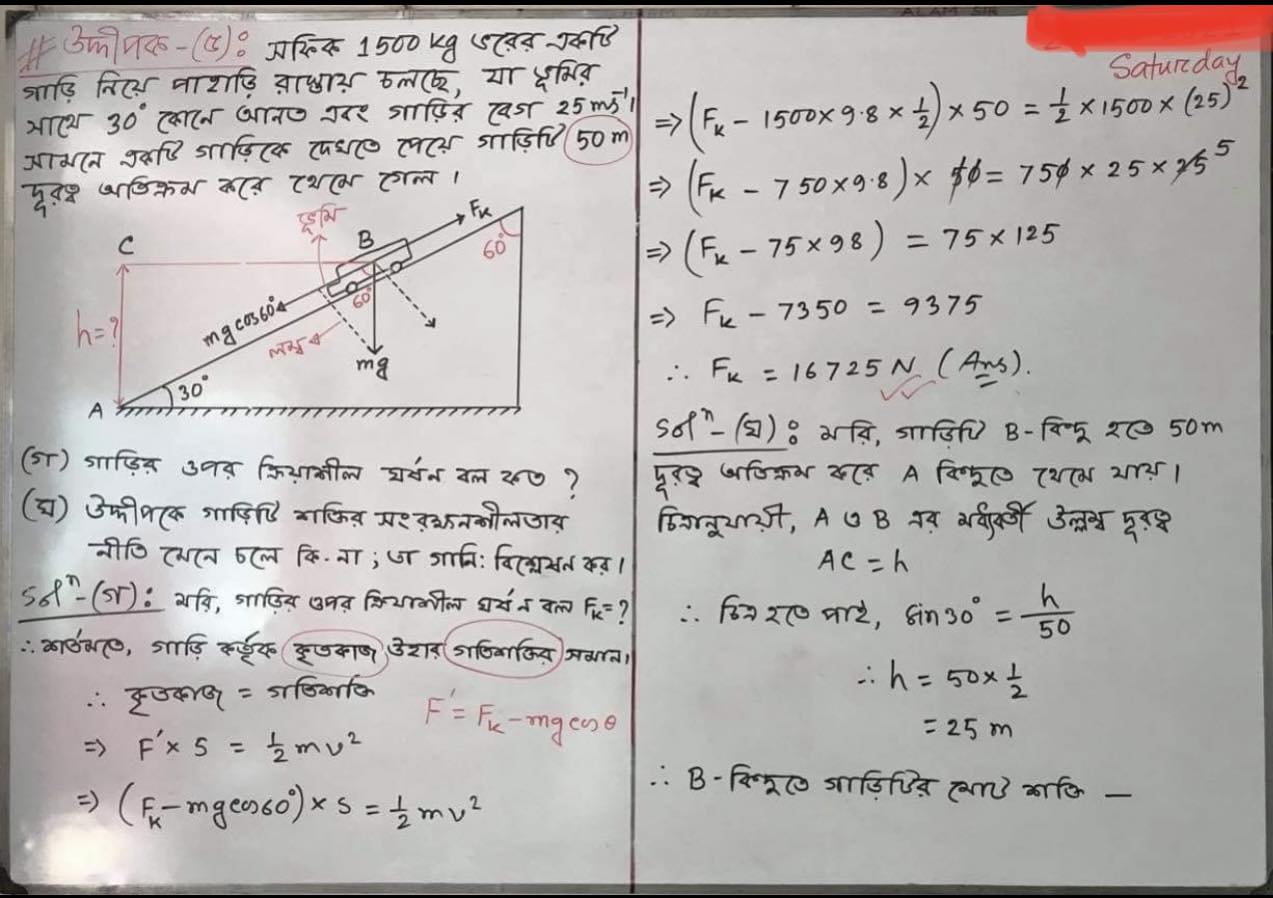 ALAM SIR
# উদ্দীপক-(৫): সফিক 1500 kg ভরের একটি
গাড়ি নিয়ে পাহাড়ি রাস্তায় চলছে, যা ভূমির
সাথে 30° কোনে আনত এবং গাড়ির বেগ 25 ms⁻¹।
সামনে একটি গাড়িকে দেখতে পেয়ে গাড়িটি 50 m
দূরত্ব অতিক্রম করে থেমে গেল।
ভূমি
Fₖ
C
B
60°
h=?
mg cos60°
60°
লম্ব
mg
30°
A
(গ) গাড়ির ওপর ক্রিয়াশীল ঘর্ষন বল কত ?
(ঘ) উদ্দীপকে গাড়িটি শক্তির সংরক্ষনশীলতার
নীতি মেনে চলে কি-না ; তা গানি: বিশ্লেষন কর।
Solⁿ-(গ): ধরি, গাড়ির ওপর ক্রিয়াশীল ঘর্ষন বল Fₖ=?
∴ শর্তমতে, গাড়ি কর্তৃক কৃতকাজ উহার গতিশক্তির সমান।
∴ কৃতকাজ = গতিশক্তি
F′ = Fₖ - mg cosθ
⇒ F′ × S = ½ mv²
⇒ (Fₖ - mg cos60°) × S = ½ mv²
Saturday
⇒ (Fₖ - 1500 × 9.8 × ½) × 50 = ½ × 1500 × (25)²
⇒ (Fₖ - 750 × 9.8) × 50 = 750 × 25 × 25 5
⇒ (Fₖ - 75 × 98) = 75 × 125
⇒ Fₖ - 7350 = 9375
∴ Fₖ = 16725 N (Ans).
Solⁿ-(ঘ): ধরি, গাড়িটি B-বিন্দু হতে 50 m
দূরত্ব অতিক্রম করে A বিন্দুতে থেমে যায়।
চিত্রানুযায়ী, A ও B এর মধ্যবর্তী উল্লম্ব দূরত্ব
AC = h
∴ চিত্র হতে পাই, sin30° = h/50
∴ h = 50 × ½
= 25 m
∴ B-বিন্দুতে গাড়িটির মোট শক্তি —